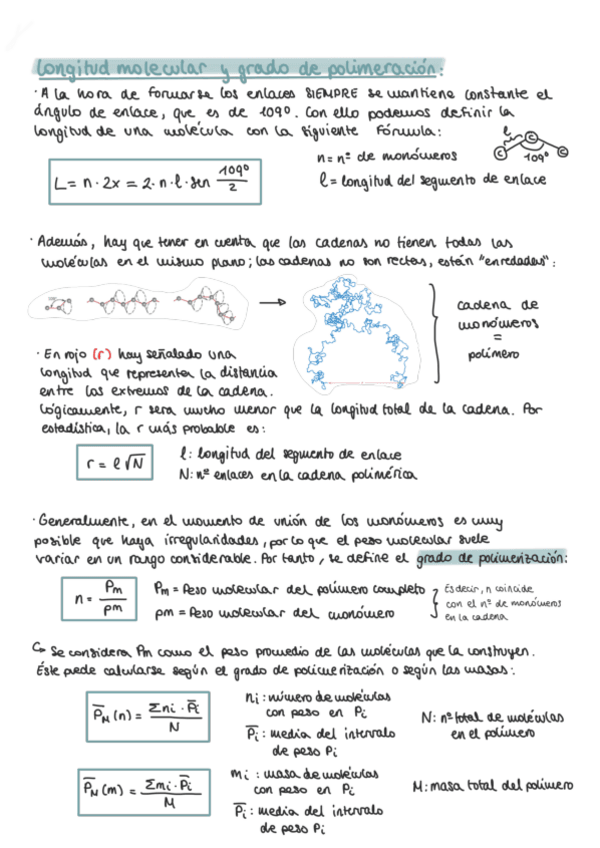 longitud molecular y grado de polimeración:
· A la hora de formarse los enlaces SIEMPRE se mantiene constante el
ángulo de enlace, que es de 109º. Con ello podemos definir la
longitud de una molécula con la siguiente fórmula:
L = n · 2x = 2 · n · l · sen 109º/2
n = nº de monómeros
l = longitud del segmento de enlace
l
C C C
109º
· Además, hay que tener en cuenta que las cadenas no tienen todas las
moléculas en el mismo plano; las cadenas no son rectas, están "enredadas":
cadena de
monómeros
=
polímero
· En rojo (r) hay señalado una
longitud que representa la distancia
entre los extremos de la cadena.
Lógicamente, r sera mucho menor que la longitud total de la cadena. Por
estadística, la r más probable es:
r = l√N
l: longitud del segmento de enlace
N: nº enlaces en la cadena polimérica
· Generalmente, en el momento de unión de los monómeros es muy
posible que haya irregularidades, por lo que el peso molecular suele
variar en un rango considerable. Por tanto, se define el grado de polimerización:
n = Pm/pm
Pm = Peso molecular del polímero completo
pm = Peso molecular del monómero
Es decir, n coincide
con el nº de monómeros
en la cadena
↳ Se considera Pm como el peso promedio de las moléculas que la construyen.
Éste puede calcularse según el grado de polimerización o según las masas:
P̅M (n) = Σni · P̅i / N
ni: número de moléculas
con peso en Pi
P̅i: media del intervalo
de peso Pi
N: nº total de moléculas
en el polímero
P̅M (m) = Σmi · P̅i / M
mi : masa de moléculas
con peso en Pi
P̅i: media del intervalo
de peso Pi
M: masa total del polímero